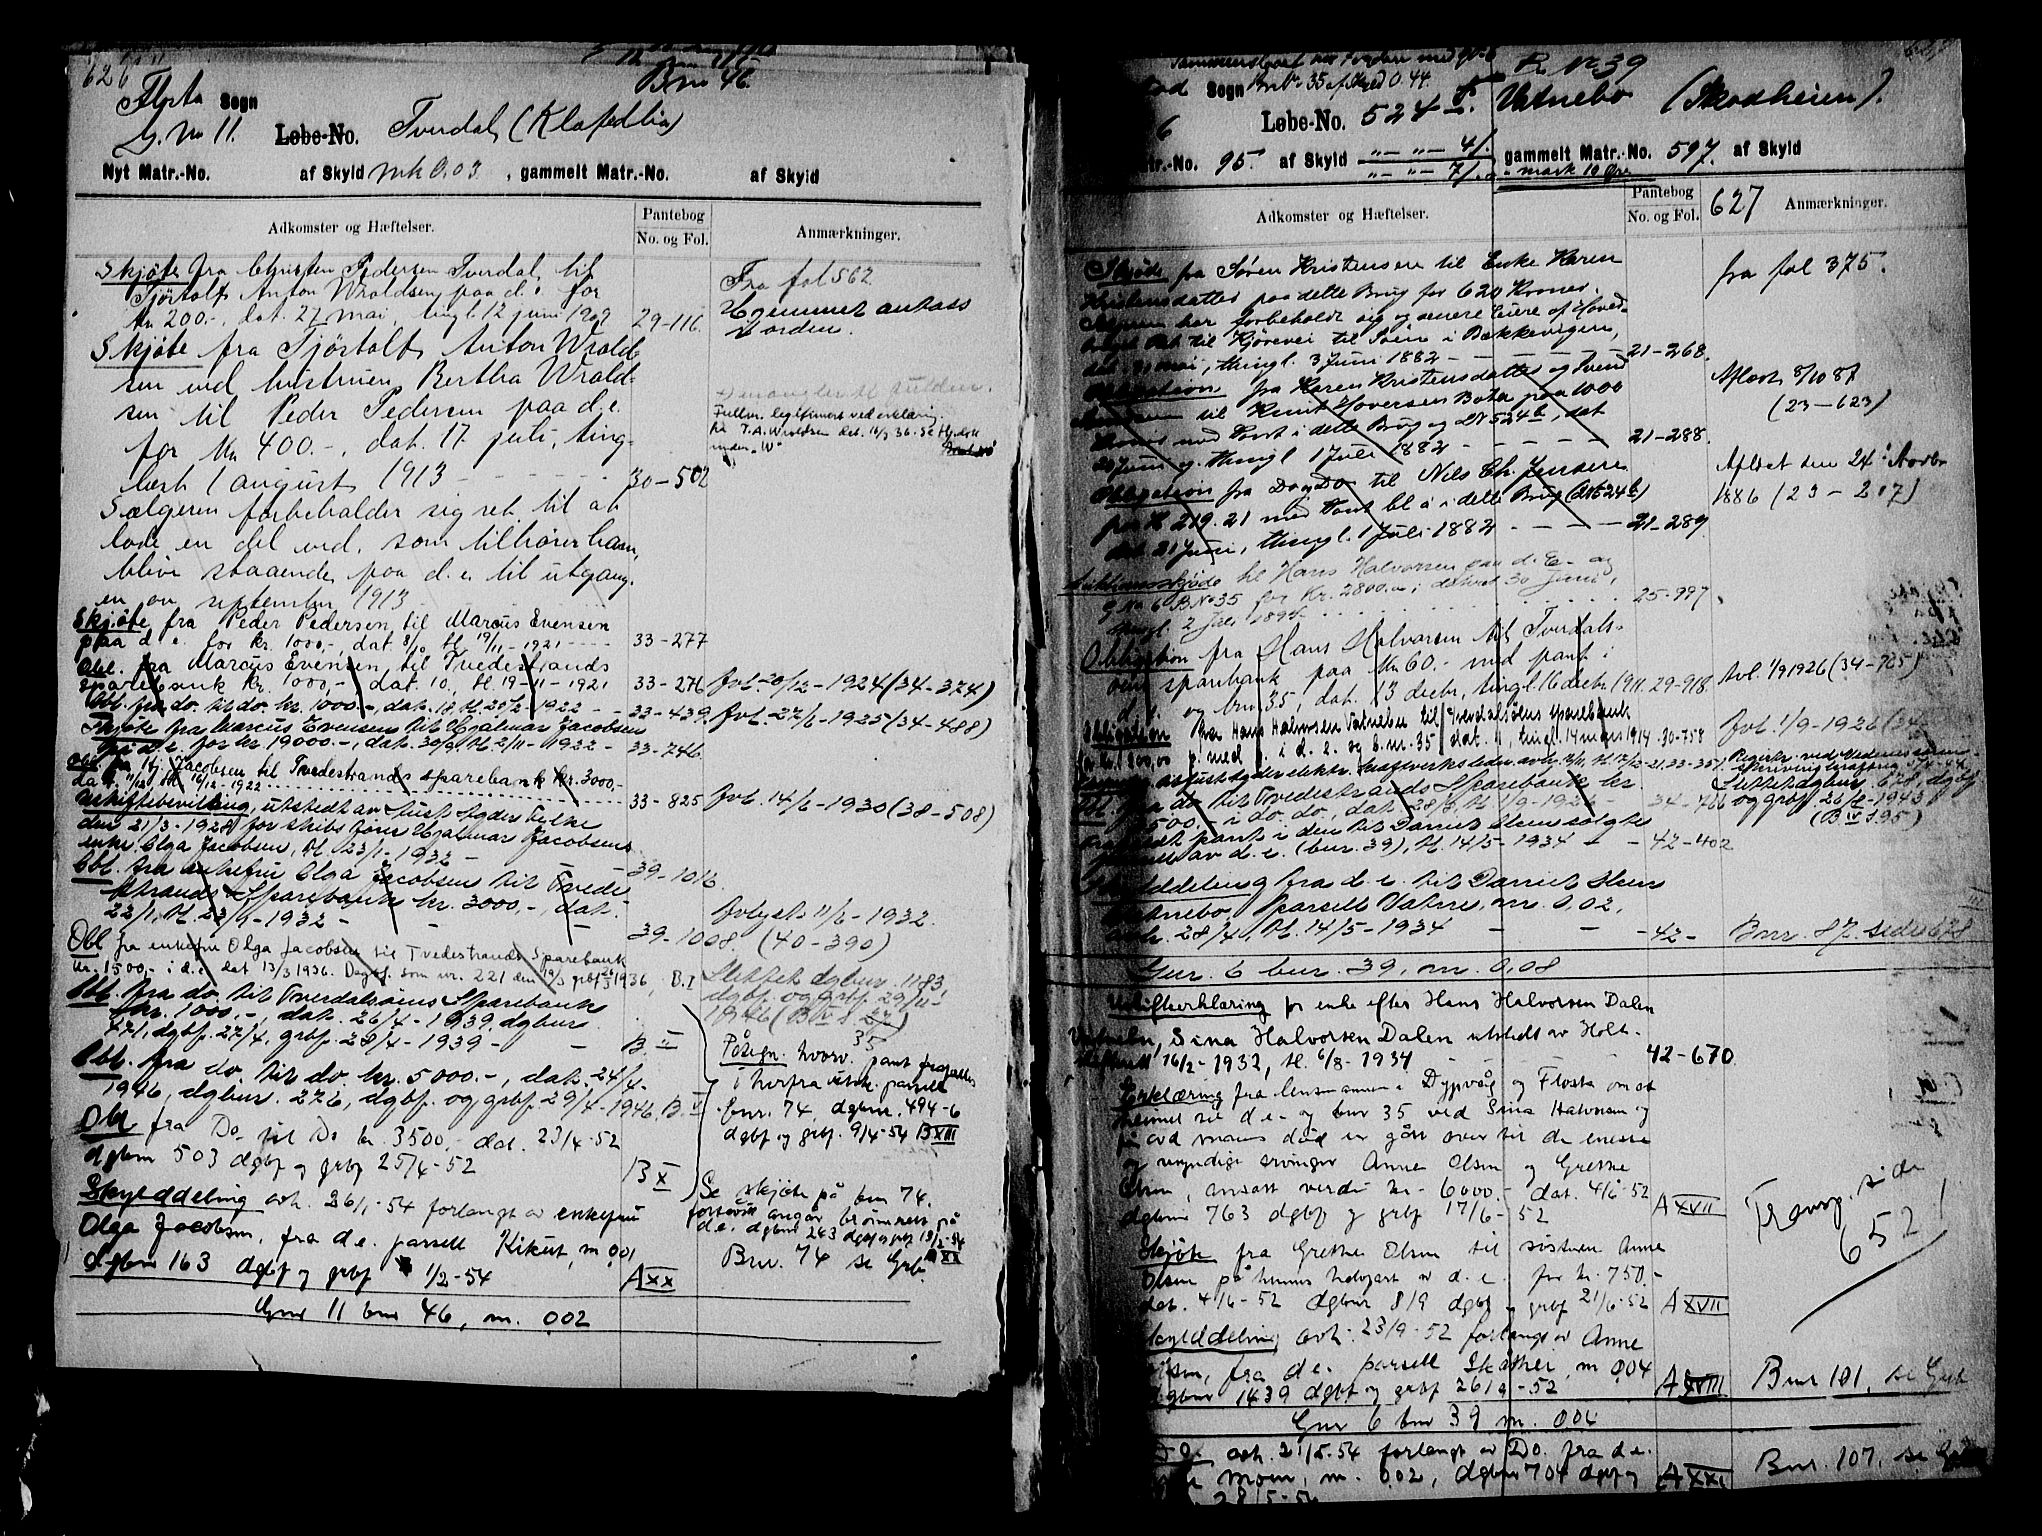 626
Bno 46.
Flosta Sogn
G. No 11. Løbe-No. Tverdal
Nyt Matr.-No. af Skyld mk 0.03, gammelt Matr.-No. af Skyld
Adkomster og Hæftelser. Pantebog No. og Fol. Anmærkninger.
Skjøte fra Christen Pedersen Tverdal til
Anton Wroldsen paa d. e. for
Kr 200.-, dat. 27 mai, tingl. 12 juni 1909 29-116.
Fra fol 562
Skjøte fra Anton Wrold-
sen ved hustruen Bertha Wrold-
sen til Peder Pedersen paa d. e.
for Kr 400.-, dat. 17 juli, ting-
læst 1 august 1913 - - - - 30-502
Sælgeren forbeholder sig ret til at
lade en del ved, som tilhører ham,
blive staaende paa d. e. til utgang-
en av september 1913
Skjøte fra Peder Pedersen til Marcus Evensen
paa d. e. for kr. 1000,-, dat. 8/10 tl. 19/11-1921 33-277
Obl. fra Marcus Evensen til Tvedestrands
sparebank kr. 1000,-, dat. 10., tl. 19-11-1921 33-276 Avl. 20/12-1924 (34-374)
Obl. fra do. til do. kr. 1000.-, dat. 18 tl. 20/2-1922 - - 33-439. Avl. 27/6-1925 (34-488)
Skjøte fra Marcus Evensen til Hjalmar Jacobsen
på d. e. for kr. 19000.-, dat. 30/9 tl. 2/11-1922 - 33-746.
Obl. fra Hj. Jacobsen til Tvedestrands sparebank kr. 3000,-
dat. 11/12 tl. 16/12-1922 33-825 Avl. 14/6-1930 (38-508)
Uskiftebevilling, utstedt av Aust-Agder Fylke
den 21/3-1928 for skibsfører Hjalmar Jacobsens
enke Olga Jacobsen, tl. 23/1-1932 - 39-1016.
Obl. fra enkefru Olga Jacobsen til Tvede-
strands Sparebank kr. 3000,-, dat.
22/1, tl. 23/1-1932 - - 39-1008. Avlyst 11/6-1932. (40-390)
Obl fra enkefru Olga Jacobsen til Tvedestrands Sparebank
kr. 1500,- i d. e. dat 13/3 1936. Dagbf. som nr. 221 den 19/3 grbf 1936, B. I
Slettet dgbnr. 1183,
dgbf. og grbf. 29/11-
1946
Obl. fra do. til Tverdalsøens Sparebank
kr. 1000,-, dat. 26/4-1939, dgbnr.
471, dgbf. 27/4, grbf. 28/4-1939 - - B. II
Obl. fra do. til do. kr. 5000.-, dat. 24/4-
1946, dgbnr. 276, dgbf. og grbf. 29/4-1946. B. V
Påtegn. hvorv. pant frafalles
i herfra utsk. parsell
bnr. 74, dgbnr. 494-6
dgbf og grbf. 9/4-54 B XIII
Obl fra Do til Do kr. 3500,- dat. 23/4-52
dgbnr 503 dgbf og grbf 25/4-52 B X
Skylddeling avh. 26/1-54 forlangt av enkefru
Olga Jacobsen, fra d. e. parsell Kikut, m 0,01
dgbnr 163 dgbf og grbf 1/2-54 A XX
Se skjøte på bnr 74.
forsåvidt angår brønnrett på
d. e. dgbnr 243 dgbf og grbf 18/2-54
A XX
Bnr. 74 se Grb.
Gnr 11 bnr 46, m. 0,02
B No 39
Sogn Bno 35 af Skyld 0.44
Løbe-No. 524 Vatnebo (Skodheien).
Matr.-No. 95. af Skyld gammelt Matr.-No. 597. af Skyld
mark 10 Øre
Adkomster og Hæftelser. Pantebog No. og Fol. 627 Anmærkninger.
Skjøde fra Søren Kristensen til Enke Karen
Kristensdatter paa dette Brug for 620 Kroner.
fra fol 375.
til Kjørevei til Søen i Bakkevigen,
dat. 31 mai, thingl. 3 Juni 1882 - - - - 21-268.
Obligation fra Karen Kristensdatter og
til Knut Hoversen paa 1000
Kroner med Pant i dette Brug og No 524 b, dat
20 Juni og thingl 1 Juli 1882 - - - 21-288.
Aflæst 8/10 87
(23-623)
Obligation fra Do til Nils Ch. Jensen
paa K 219.21 med Pant bl. a. i dette Brug
dat. 21 Juni, thingl. 1 Juli 1882 - - - 21-289
Aflæst den 24 Novbr
1886 (23-217)
Auktionsskjøde til Hans Halvorsen paa d. E. og
G No 6 B No 35 for Kr. 2800.00; dateret 30 Juni,
thingl. 2 Juli 1895 25-997.
Obligation fra Hans Halvorsen til Tverdals-
øens sparebank paa Kr 60.- med pant i
d. e. og bno 35, dat. 13 decbr, tingl. 16 decbr. 1911. 29-918. Avl. 1/9 1926 (34-765)
Obligation fra Hans Halvorsen Vatnebu til Tverdalsøens sparebank
for kr. 1800,00 p. med p. i d. e. og b.nr. 35 dat. 11, tingl. 14 mars 1914 30-758 Avl. 1/9-1926
Obl. fra do til Tvedestrands Sparebank kr.
500.- i do. do., dat. 28/8, tl. 1/9-1926 34-766
pant i den til Daniel Olsen solgte
parsell av d. e. (bnr. 39), tl. 14/5-1934 - - 42-402
Skylddeling fra d. e. til Daniel Olsen
Vatnebo, parsell Vatne, m. 0,02,
avh. 28/4, tl. 14/5-1934 - - - 42- Bnr. 87. side 678
Gnr. 6 bnr. 39, m. 0,08
Uskifteerklæring for enke efter Hans Halvorsen Dalen
Vatnebu, Sina Halvorsen Dalen utstedt av Holt-
16/2-1932, tl. 6/8-1934 42-670
Erklæring fra lensmannen i Dypvåg og Flosta om at
heimel til d. e. og bnr 35 ved Sina Halvorsen og
mans død er gått over til de eneste
og myndige arvinger Anne Olsen og Grethe
Olsen, ansatt verdi kr. 6000.- dat. 4/6-52
dgbnr 763 dgbf og grbf 17/6-52 A XVII
Transp. side
652
Skjøte fra Grethe Olsen til søsteren Anne
Olsen på hennes halvpart av d. e. for kr. 750.-
dat. 4/6-52 dgbnr 819 dgbf og grbf 21/6-52 A XVII
Skylddeling avh. 23/9-52 forlangt av Anne
Olsen, fra d. e. parsell m 0,04
dgbnr 1439 dgbf og grbf 26/9-52 A XVIII Bnr 101, se Grb
Gnr 6 bnr 39 m. 0,04
Do. avh. 21/5-54 forlangt av Do. fra d. e.
m. 0,02, dgbnr 704 dgbf og A XXI Bnr. 107, se
28/5-54